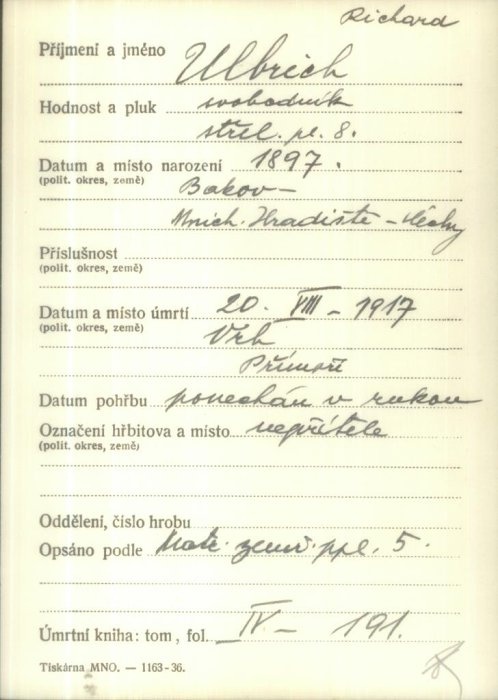 Richard
Příjmení a jméno Ulbrich
Hodnost a pluk svobodník
střel. pl. 8.
Datum a místo narození 1897.
(polit. okres, země) Bakov –
Mnich. Hradiště – Čechy
Příslušnost
(polit. okres, země)
Datum a místo úmrtí 20. VIII – 1917
(polit. okres, země) Vrh
Přímoří
Datum pohřbu ponechán v rukou
Označení hřbitova a místo nepřítele
(polit. okres, země)
Oddělení, číslo hrobu
Opsáno podle Matr. zemř. ppl. 5.
Úmrtní kniha: tom, fol. IV – 191.
Tiskárna MNO. — 1163-36.